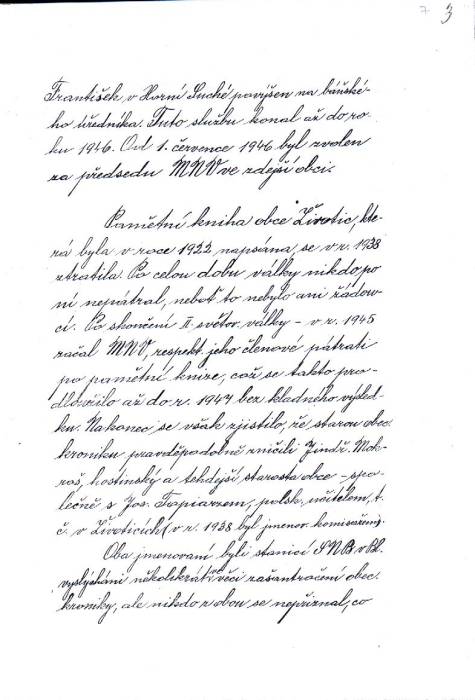 7 3
František, v Horní Suché povýšen na báňské-
ho úředníka. Tuto službu konal až do ro-
ku 1946. Od 1. července 1946 byl zvolen
za předsedu MNV ve zdejší obci.
Pamětní kniha obce Životic, kte-
rá byla v roce 1922 napsána, se v r. 1938
ztratila. Po celou dobu války nikdo po
ní nepátral, neboť to nebylo ani žádou-
cí. Po skončení II. světov. války - v r. 1945
začal MNV, respekt. jeho členové pátrati
po pamětní knize, což se takto pro-
dloužilo až do r. 1947 bez kladného výsled-
ku. Nakonec se však zjistilo, že starou obec.
kroniku pravděpodobně zničili Jindř. Mok-
roš, hostinský a tehdejší starosta obce - spo-
lečně s Jos. Topiarzem, polsk. učitelem, t.
č. v Životicích (v r. 1938 byl jmenov. komisařem).
Oba jmenovaní byli stanicí SNB v
vyslýcháni několikrát věci zašantročení obec.
kroniky, ale nikdo z obou se nepřiznal, co